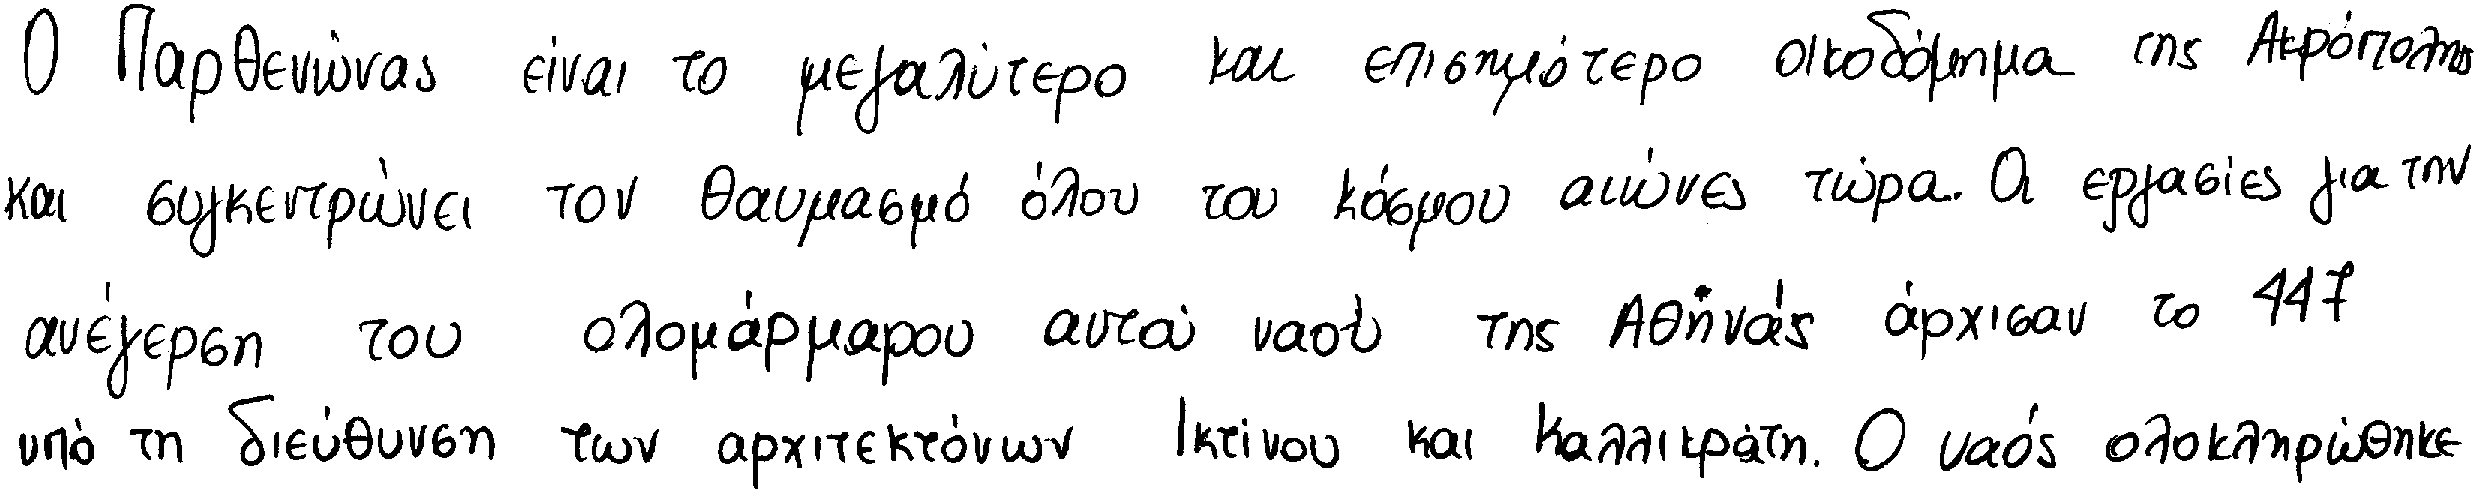 Ο Παρθενώνας είναι το μεγαλύτερο και επισημότερο οικοδόμημα της Ακρόπολης
και συγκεντρώνει τον θαυμασμό όλου του κόσμου αιώνες τώρα. Οι εργασίες για την
ανέγερση του ολομάρμαρου αυτού ναού της Αθηνάς άρχισαν το 447
υπό τη διεύθυνση των αρχιτεκτόνων Ικτίνου και Καλλικράτη. Ο ναός ολοκληρώθηκε